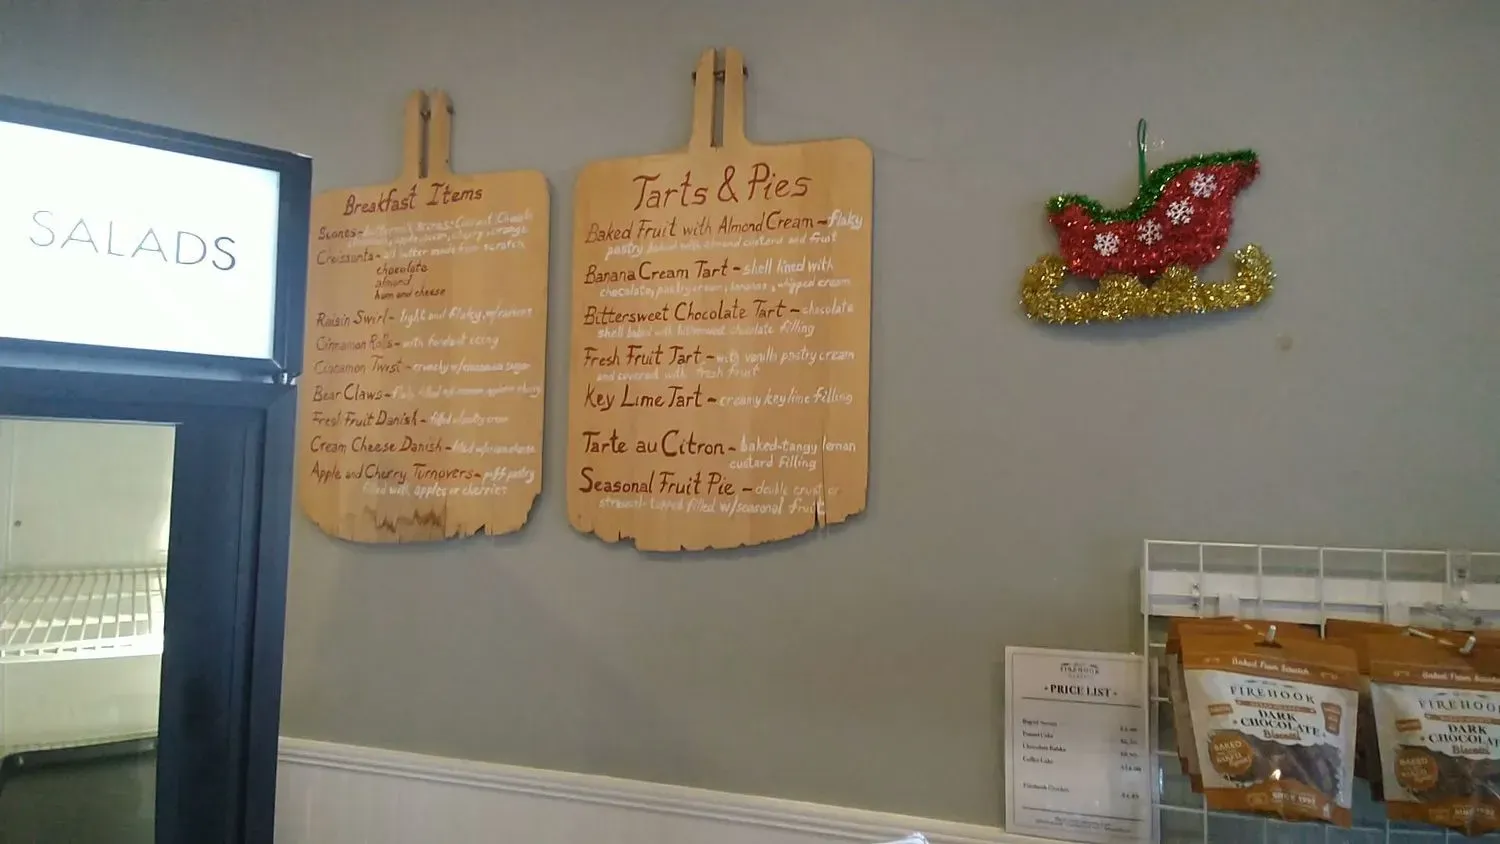 SALADS
Breakfast Items
Scones-
Croissants - all butter made from scratch
chocolate
almond
ham and cheese
Raisin Swirl - light and flakey, w/raisins
Cinnamon Rolls - with fondant icing
Cinnamon Twist - crunchy w/cinnamon sugar
Bear Claws -
Fresh Fruit Danish - filled
Cream Cheese Danish - filled
Apple and Cherry Turnovers - puff pastry
filled with apples or cherries
Tarts & Pies
Baked Fruit with Almond Cream - flaky
pastry baked with almond custard and fruit
Banana Cream Tart - shell lined with
chocolate, pastry cream, bananas, whipped cream
Bittersweet Chocolate Tart - chocolate
shell baked with bittersweet chocolate filling
Fresh Fruit Tart - with vanilla pastry cream
and covered with fresh fruit
Key Lime Tart - creamy key lime filling
Tarte au Citron - baked-tangy lemon
custard filling
Seasonal Fruit Pie - double crust or
filled w/seasonal fruit
FIREHOOK
• PRICE LIST •
Chocolate Babka
Coffee Cake
Baked From Scratch
FIREHOOK
DARK
CHOCOLATE
Biscotti
BAKED
SINCE 1992
FIREHOOK
DARK
CHOCOLATE
Biscotti
BAKED